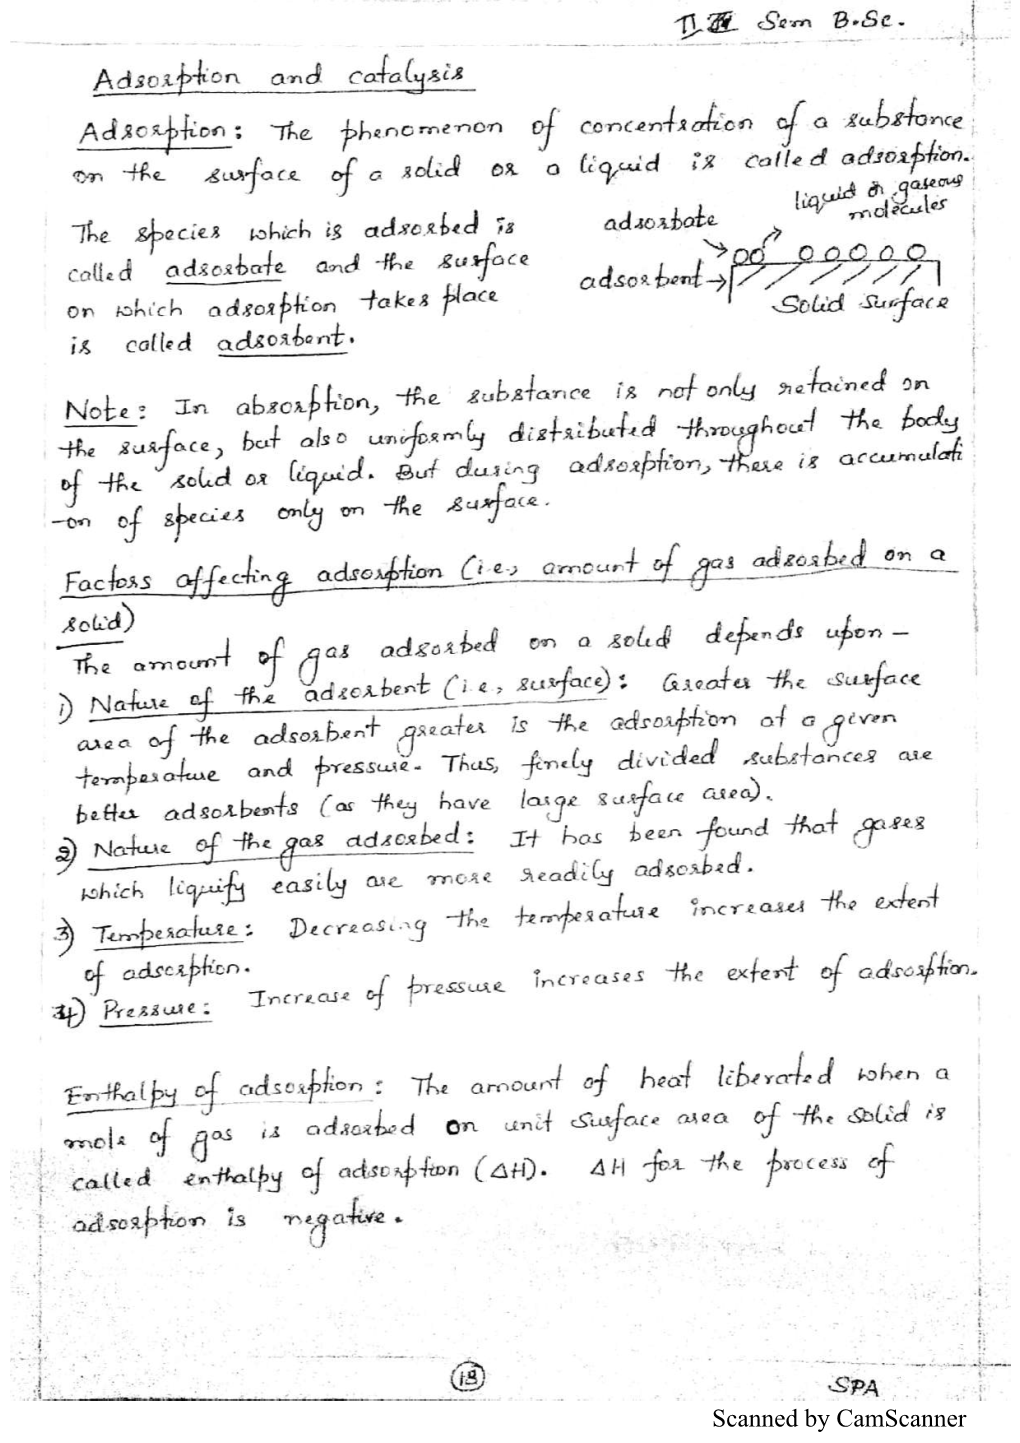 II Sem B.Sc.
Adsorption and catalysis
Adsorption: The phenomenon of concentration of a substance
on the surface of a solid or a liquid is called adsorption.
liquid or gaseous
molecules
adsorbate
adsorbent
Solid surface
The species which is adsorbed is
called adsorbate and the surface
on which adsorption takes place
is called adsorbent.
Note: In absorption, the substance is not only retained on
the surface, but also uniformly distributed throughout the body
of the solid or liquid. But during adsorption, there is accumulati
-on of species only on the surface.
Factors affecting adsorption (i.e., amount of gas adsorbed on a
solid)
The amount of gas adsorbed on a solid depends upon –
1) Nature of the adsorbent (i.e., surface): Greater the surface
area of the adsorbent greater is the adsorption at a given
temperature and pressure. Thus, finely divided substances are
better adsorbents (as they have large surface area).
2) Nature of the gas adsorbed: It has been found that gases
which liquify easily are more readily adsorbed.
3) Temperature: Decreasing the temperature increases the extent
of adsorption.
4) Pressure: Increase of pressure increases the extent of adsorption.
Enthalpy of adsorption: The amount of heat liberated when a
mole of gas is adsorbed on unit surface area of the solid is
called enthalpy of adsorption (ΔH). ΔH for the process of
adsorption is negative.
18
SPA
Scanned by CamScanner